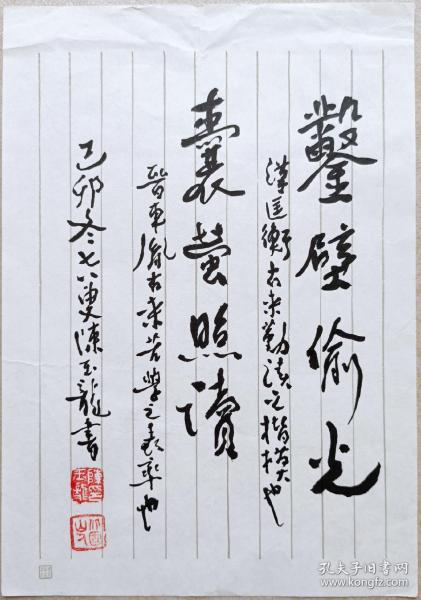 鑿壁偷光
漢匡衡古來勤讀之楷模也
囊萤照讀
晉車胤古來苦學之表率也
己卯冬七八叟陳玉龍書
孔夫子旧书网